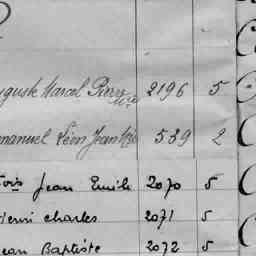 uguste Marcel Pierre 2196 5
manuel Léon Jean 589 2
ois Jean Emile 2070 5
Henri Charles 2071 5
ean Baptiste 2072 5